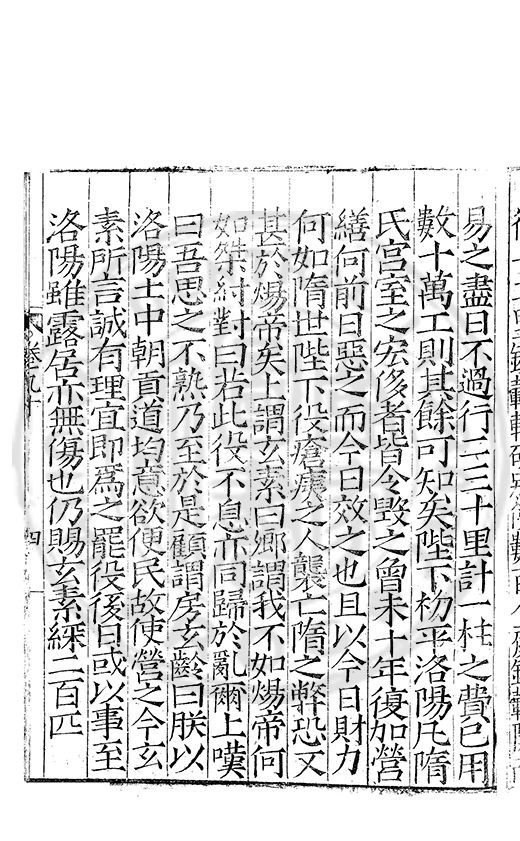 易之盡日不過行二三十里計一柱之費已用
數十萬工則其餘可知矣陛下初平洛陽凡隋
氏宮室之宏侈者皆令毀之曾未十年復加營
繕何前日惡之而今日效之也且以今日財力
何如隋世陛下役瘡痍之人襲亡隋之弊恐又
甚於煬帝矣上謂玄素曰卿謂我不如煬帝何
如桀紂對曰若此役不息亦同歸於亂爾上嘆
曰吾思之不熟乃至於是顧謂房玄齡曰朕以
洛陽土中朝貢道均意欲便民故使營之今玄
素所言誠有理宜即為之罷役後日或以事至
洛陽雖露居亦無傷也仍賜玄素綵二百匹
卷九十
四